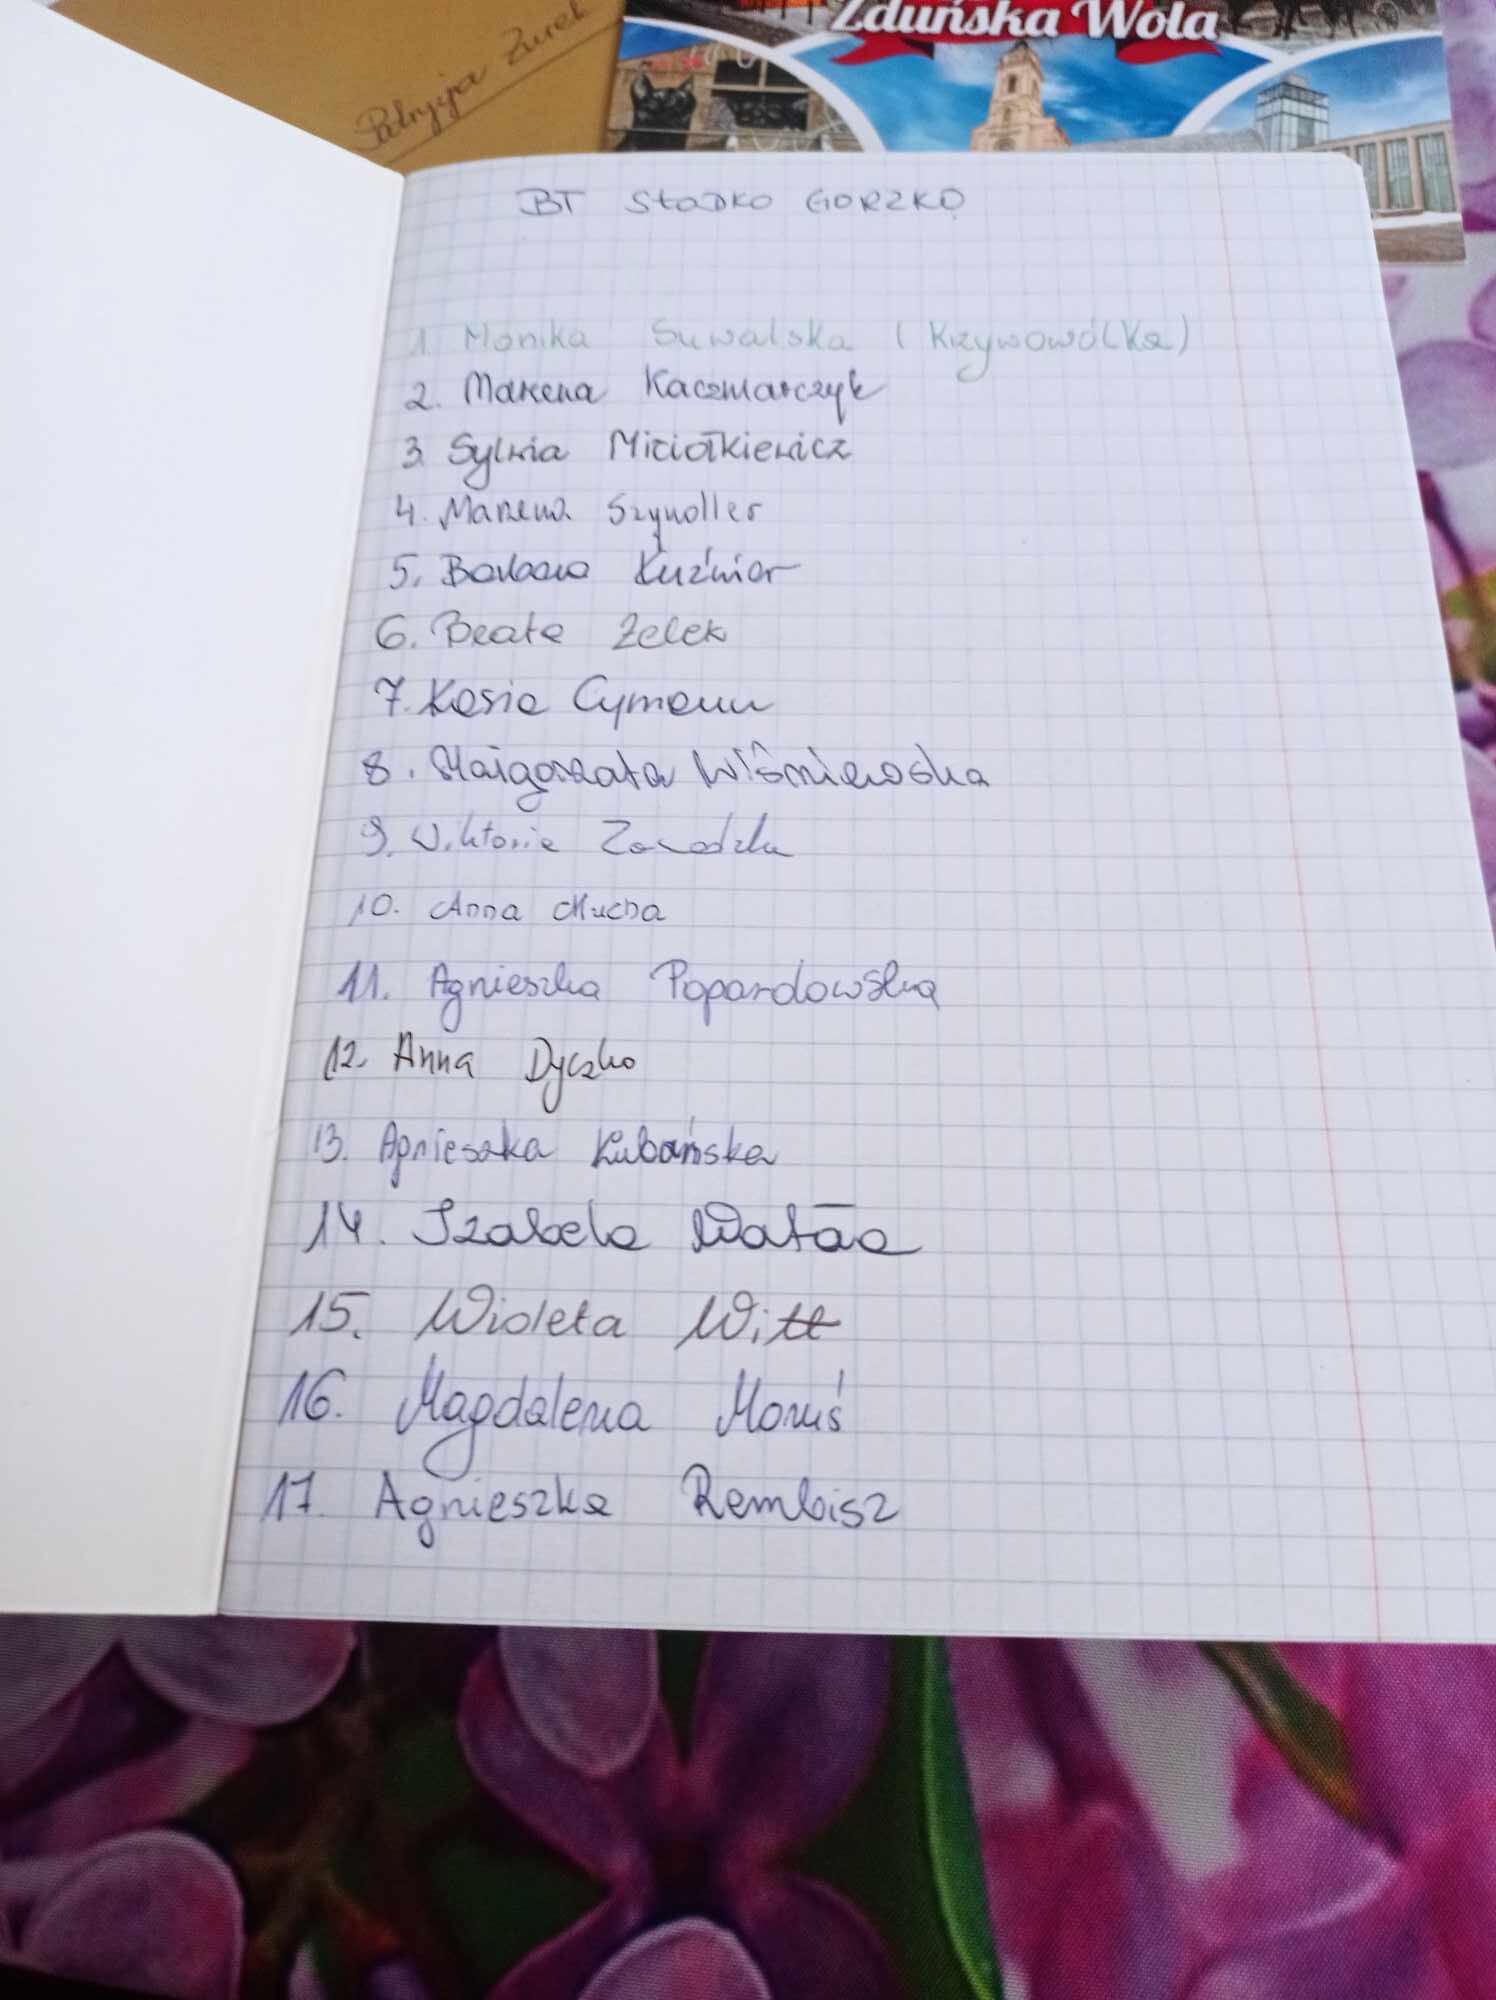 Zduńska Wola
Patrycja Żurek
BT SŁODKO GORZKO
1. Monika Suwalska (Krzywowólka)
2. Marzena Kaczmarczyk
3. Sylwia Miciołkiewicz
4. Marzena Szynoller
5. Barbara Kuźniar
6. Beata Zelek
7. Kasia Cymann
8. Małgorzata Wiśniewska
9. Wiktoria Zawadzka
10. Anna Mucha
11. Agnieszka Popardowska
12. Anna Dyczko
13. Agnieszka Łubańska
14. Izabela
15. Wioleta Witt
16. Magdalena Moruś
17. Agnieszka Rembisz